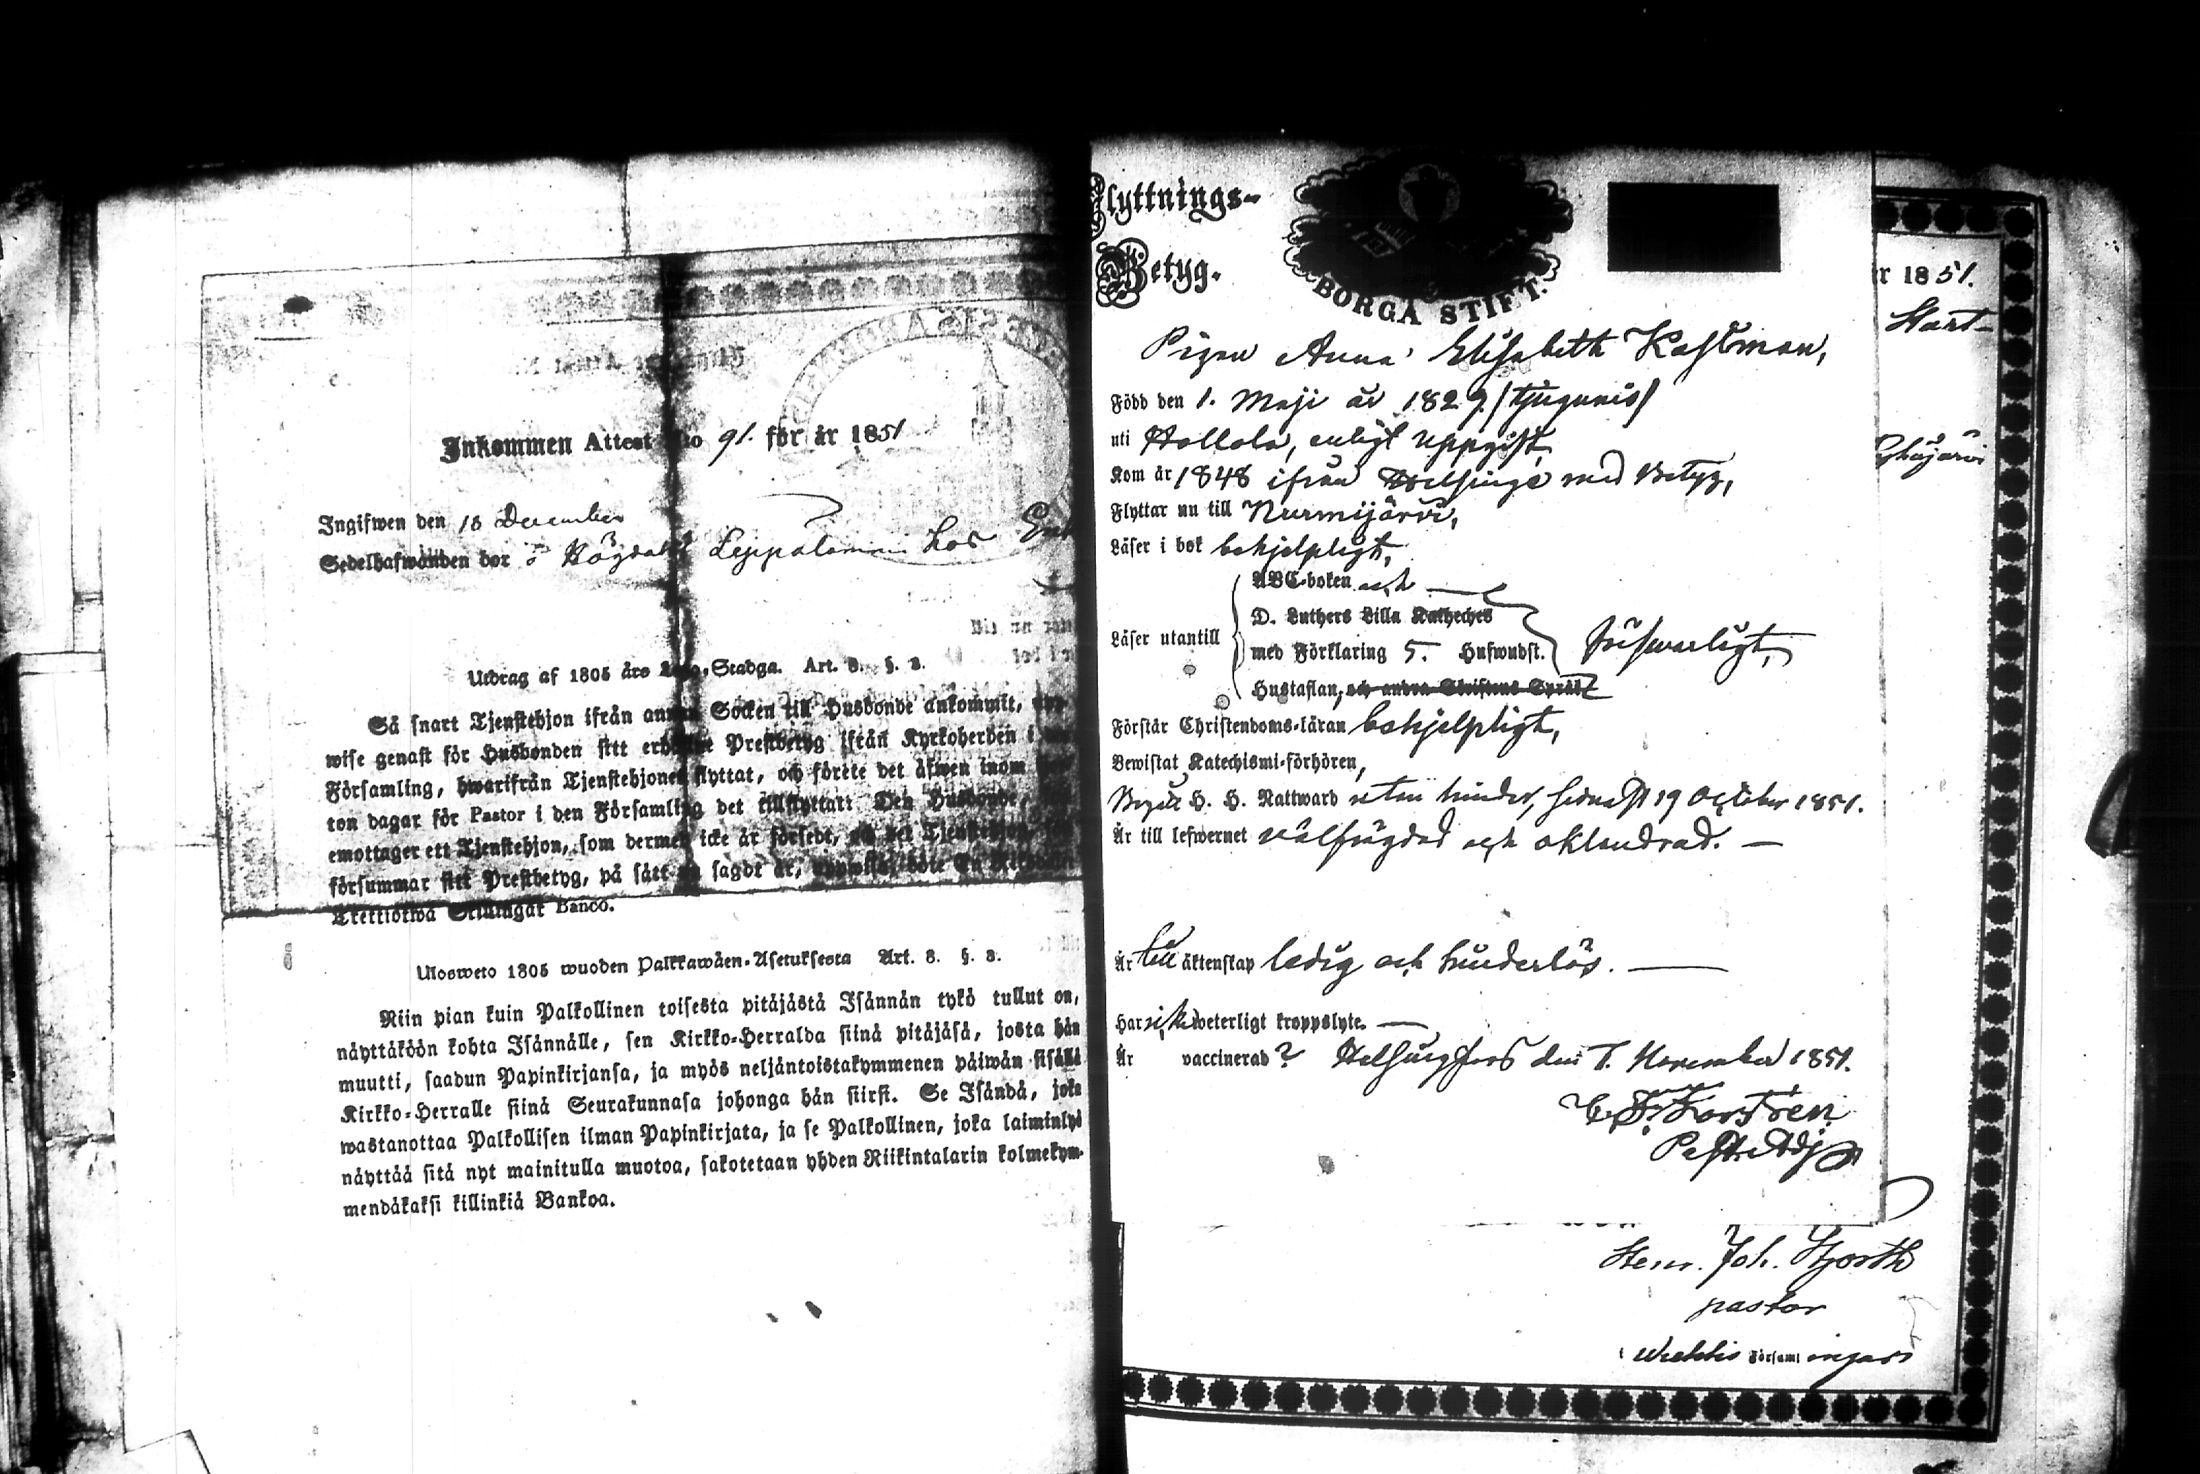 Inkommen Attest No 91. för år 1851
Ingifwen den 18 December
Sedelhafwanden bor
Utdrag af 1805 års Lego-Stadga. Art. 8. §. 3.
Så snart Tjenstehjon ifrån annan Socken till Husbonde ankommit,
wise genast för Husbonden sitt erhållne Prestbetyg ifrån Kyrkoherden i
Församling, hwarifrån Tjenstehjonet flyttat, och förete det äfwen inom
ton dagar för Pastor i den Församling det tillflyttat: Den Husbonde,
emottager ett Tjenstehjon, som dermed icke är försedt, och det Tjenstehjon,
försummar sitt Prestbetyg, på sätt sagdt är, uppwisa, böte En
Trettiotwå Skillingar Banco.
Ulosweto 1805 wuoden Palkkawäen-Asetuksesta Art. 8. §. 3.
Niin pian kuin Palkollinen toisesta pitäjästä Isännän tykö tullut on,
näyttäköön kohta Isännälle, sen Kirkko-Herralda siinä pitäjäsä, josta hän
muutti, saadun Papinkirjansa, ja myös neljäntoistakymmenen päiwän sisällä
Kirkko-Herralle siinä Seurakunnasa johonga hän siirsi. Se Isändä, joka
wastanottaa Palkollisen ilman Papinkirjata, ja se Palkollinen, joka laiminlyö
näyttää sitä nyt mainitulla muotoa, sakotetaan yhden Riikintalarin kolmekym-
mendäkaksi killinkiä Bankoa.
Flyttnings-
Betyg.
BORGÅ STIFT.
Pigan Anna Elisabeth Kastman,
Född den 1. Maji år 1829. (tjugunio)
uti Hollola, enligt uppgift,
Kom år 1848 ifrån Helsinge med Betyg,
Flyttar nu till Nurmijärvi,
Läser i bok behjelpligt,
ABC-boken och
D. Luthers Lilla Katheches
Läser utantill
med Förklaring 5. Hufwudst.
försvarligt,
Hustaflan, och andra Skriftens Språk
Förstår Christendoms-läran behjelpligt,
Bewistat Katechismi-förhören,
Begått H. H. Nattward utan hinder, sednast 19 October 1851.
Är till lefwernet välfrägdad och oklandrad.
Är till äktenskap ledig och hinderlös.
Har icke weterligt kroppslyte.
Är vaccinerad? Helsingfors den 7. November 1851.
Past. Adj
r 1851.
Hart-
Henr. Joh. Hjorth
pastor
i Wichtis Församlingar